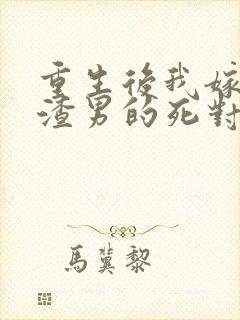 重生後我嫁
渣男的死對
馬蓂黎